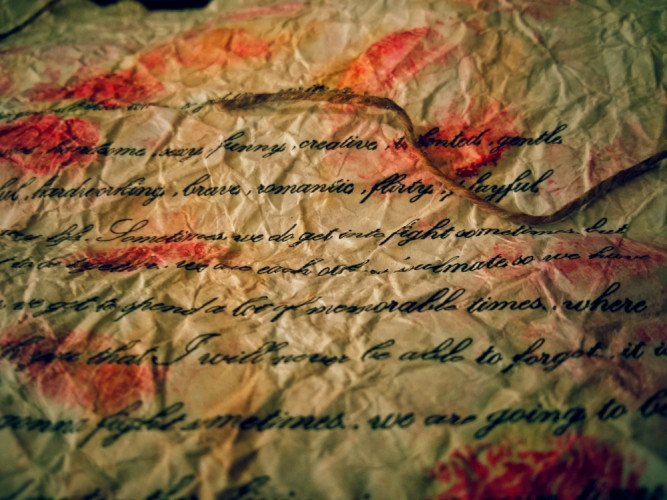 handsome, sexy, funny, creative, talented, gentle
hardworking, brave, romantic, flirty, playful
life. Sometimes we do get into fight sometimes but
we are each other soulmate so we have
we got to spend a lot of memorable times, where
that I will never be able to forget, it
gonna fight sometimes.. we are going to